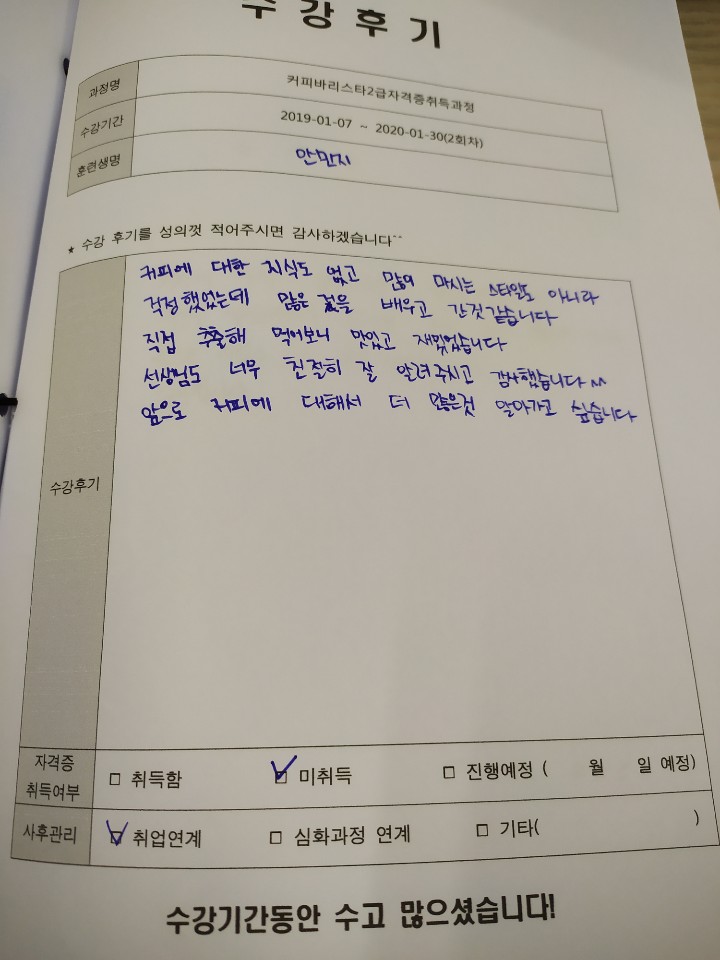 수강후기
과정명 커피바리스타2급자격증취득과정
수강기간 2019-01-07 ~ 2020-01-30(2회차)
훈련생명 안민지
★ 수강 후기를 성의껏 적어주시면 감사하겠습니다^^
커피에 대한 지식도 없고 많이 마시는 스타일도 아니라
걱정했었는데 많은 것을 배우고 간것같습니다
직접 추출해 먹어보니 맛있고 재밌었습니다
선생님도 너무 친절히 잘 알려주시고 감사했습니다^^
앞으로 커피에 대해서 더 많은것 알아가고 싶습니다
수강후기
자격증
취득여부
□ 취득함 ☑ 미취득 □ 진행예정 ( 월 일 예정)
사후관리 ☑ 취업연계 □ 심화과정 연계 □ 기타( )
수강기간동안 수고 많으셨습니다!